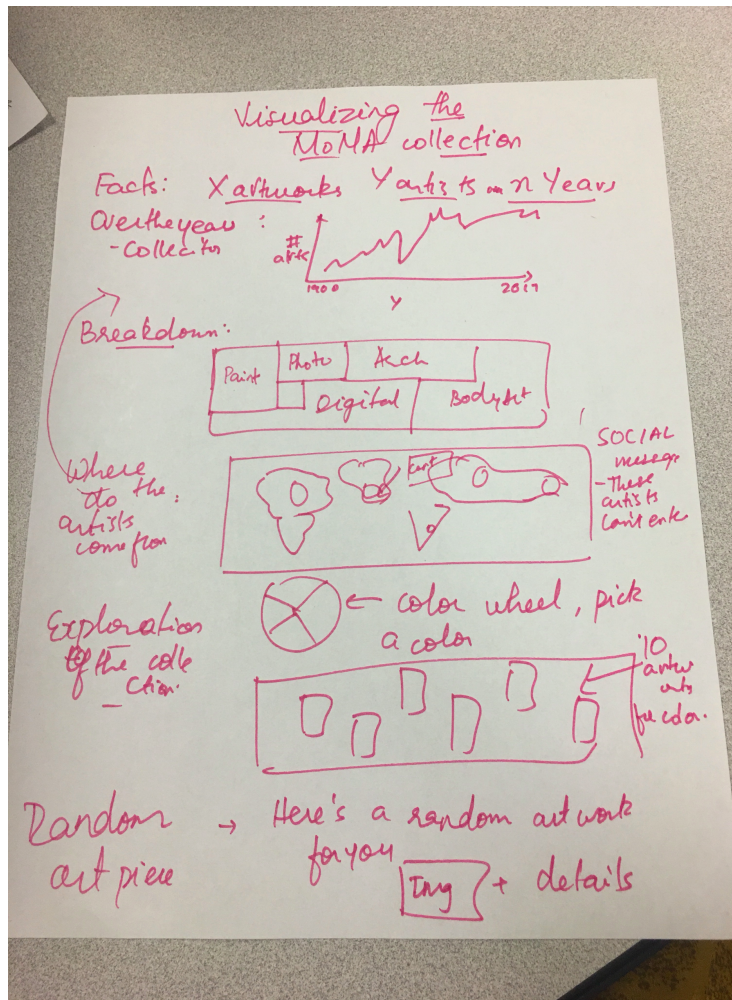 Visualizing the
MoMA collection
Facts: X artworks Y artists in n Years
Over the years :
- Collection
# arts
1900
2017
Y
Breakdown:
Paint
Photo
Arch
Digital
Body Art
Where
do the :
artists
come from
SOCIAL
message
- These
artists
can't enter
← color wheel, pick
a color
Exploration
of the colle
ction.
10
for color.
Random → Here's a random artwork
art piece
for you
Img + details